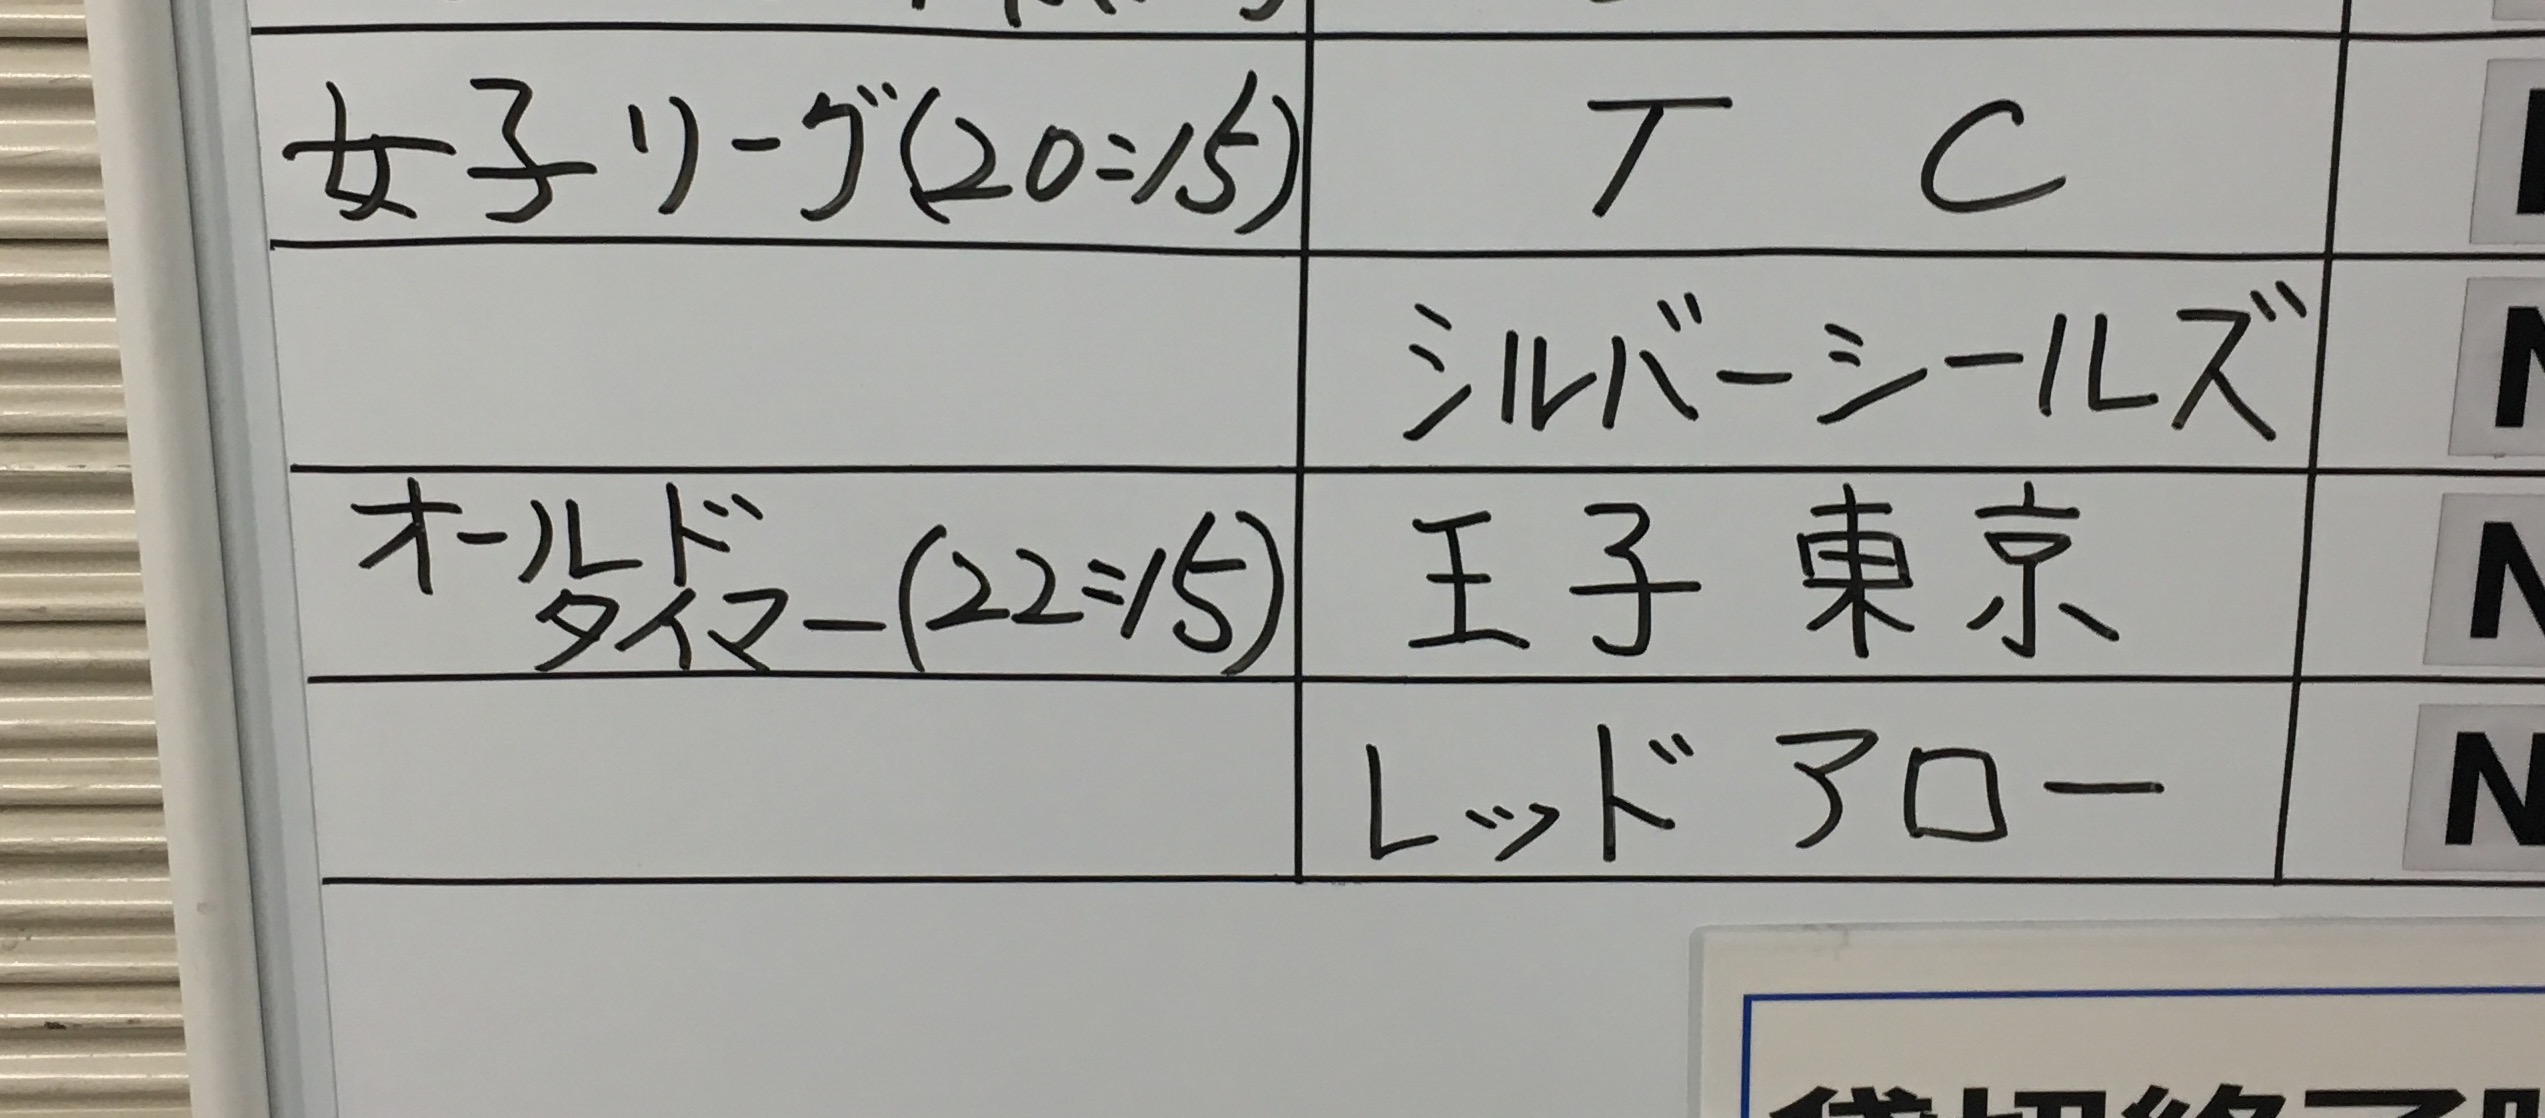 女子リーグ(20=15) T C
シルバーシールズ N
オールド
タイマー(22=15) 王子東京 N
レッドアロー N
貸切終了